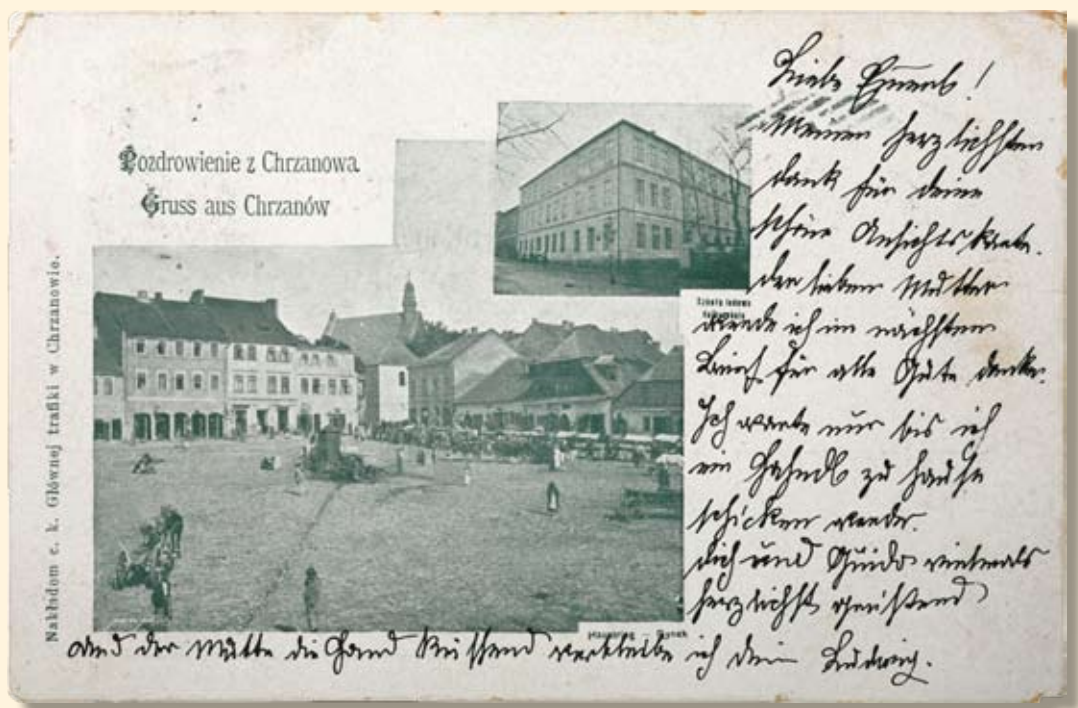 Pozdrowienie z Chrzanowa
Gruss aus Chrzanów
Nakładem c. k. Głównej trafiki w Chrzanowie.
Szkoła ludowa
Rynek
Liebe
Meinen herzlichsten
Dank für deine
schöne Ansichtskarte.
Der lieben Mutter
werde ich im nächsten
Brief für alle Güte danken.
Ich warte nur bis ich
ein zu Hause
schicken werde.
Dich und Guido vielmals
herzlichst grüßend
und der Mutter die Hand küssend verbleibe ich dein Ludwig.